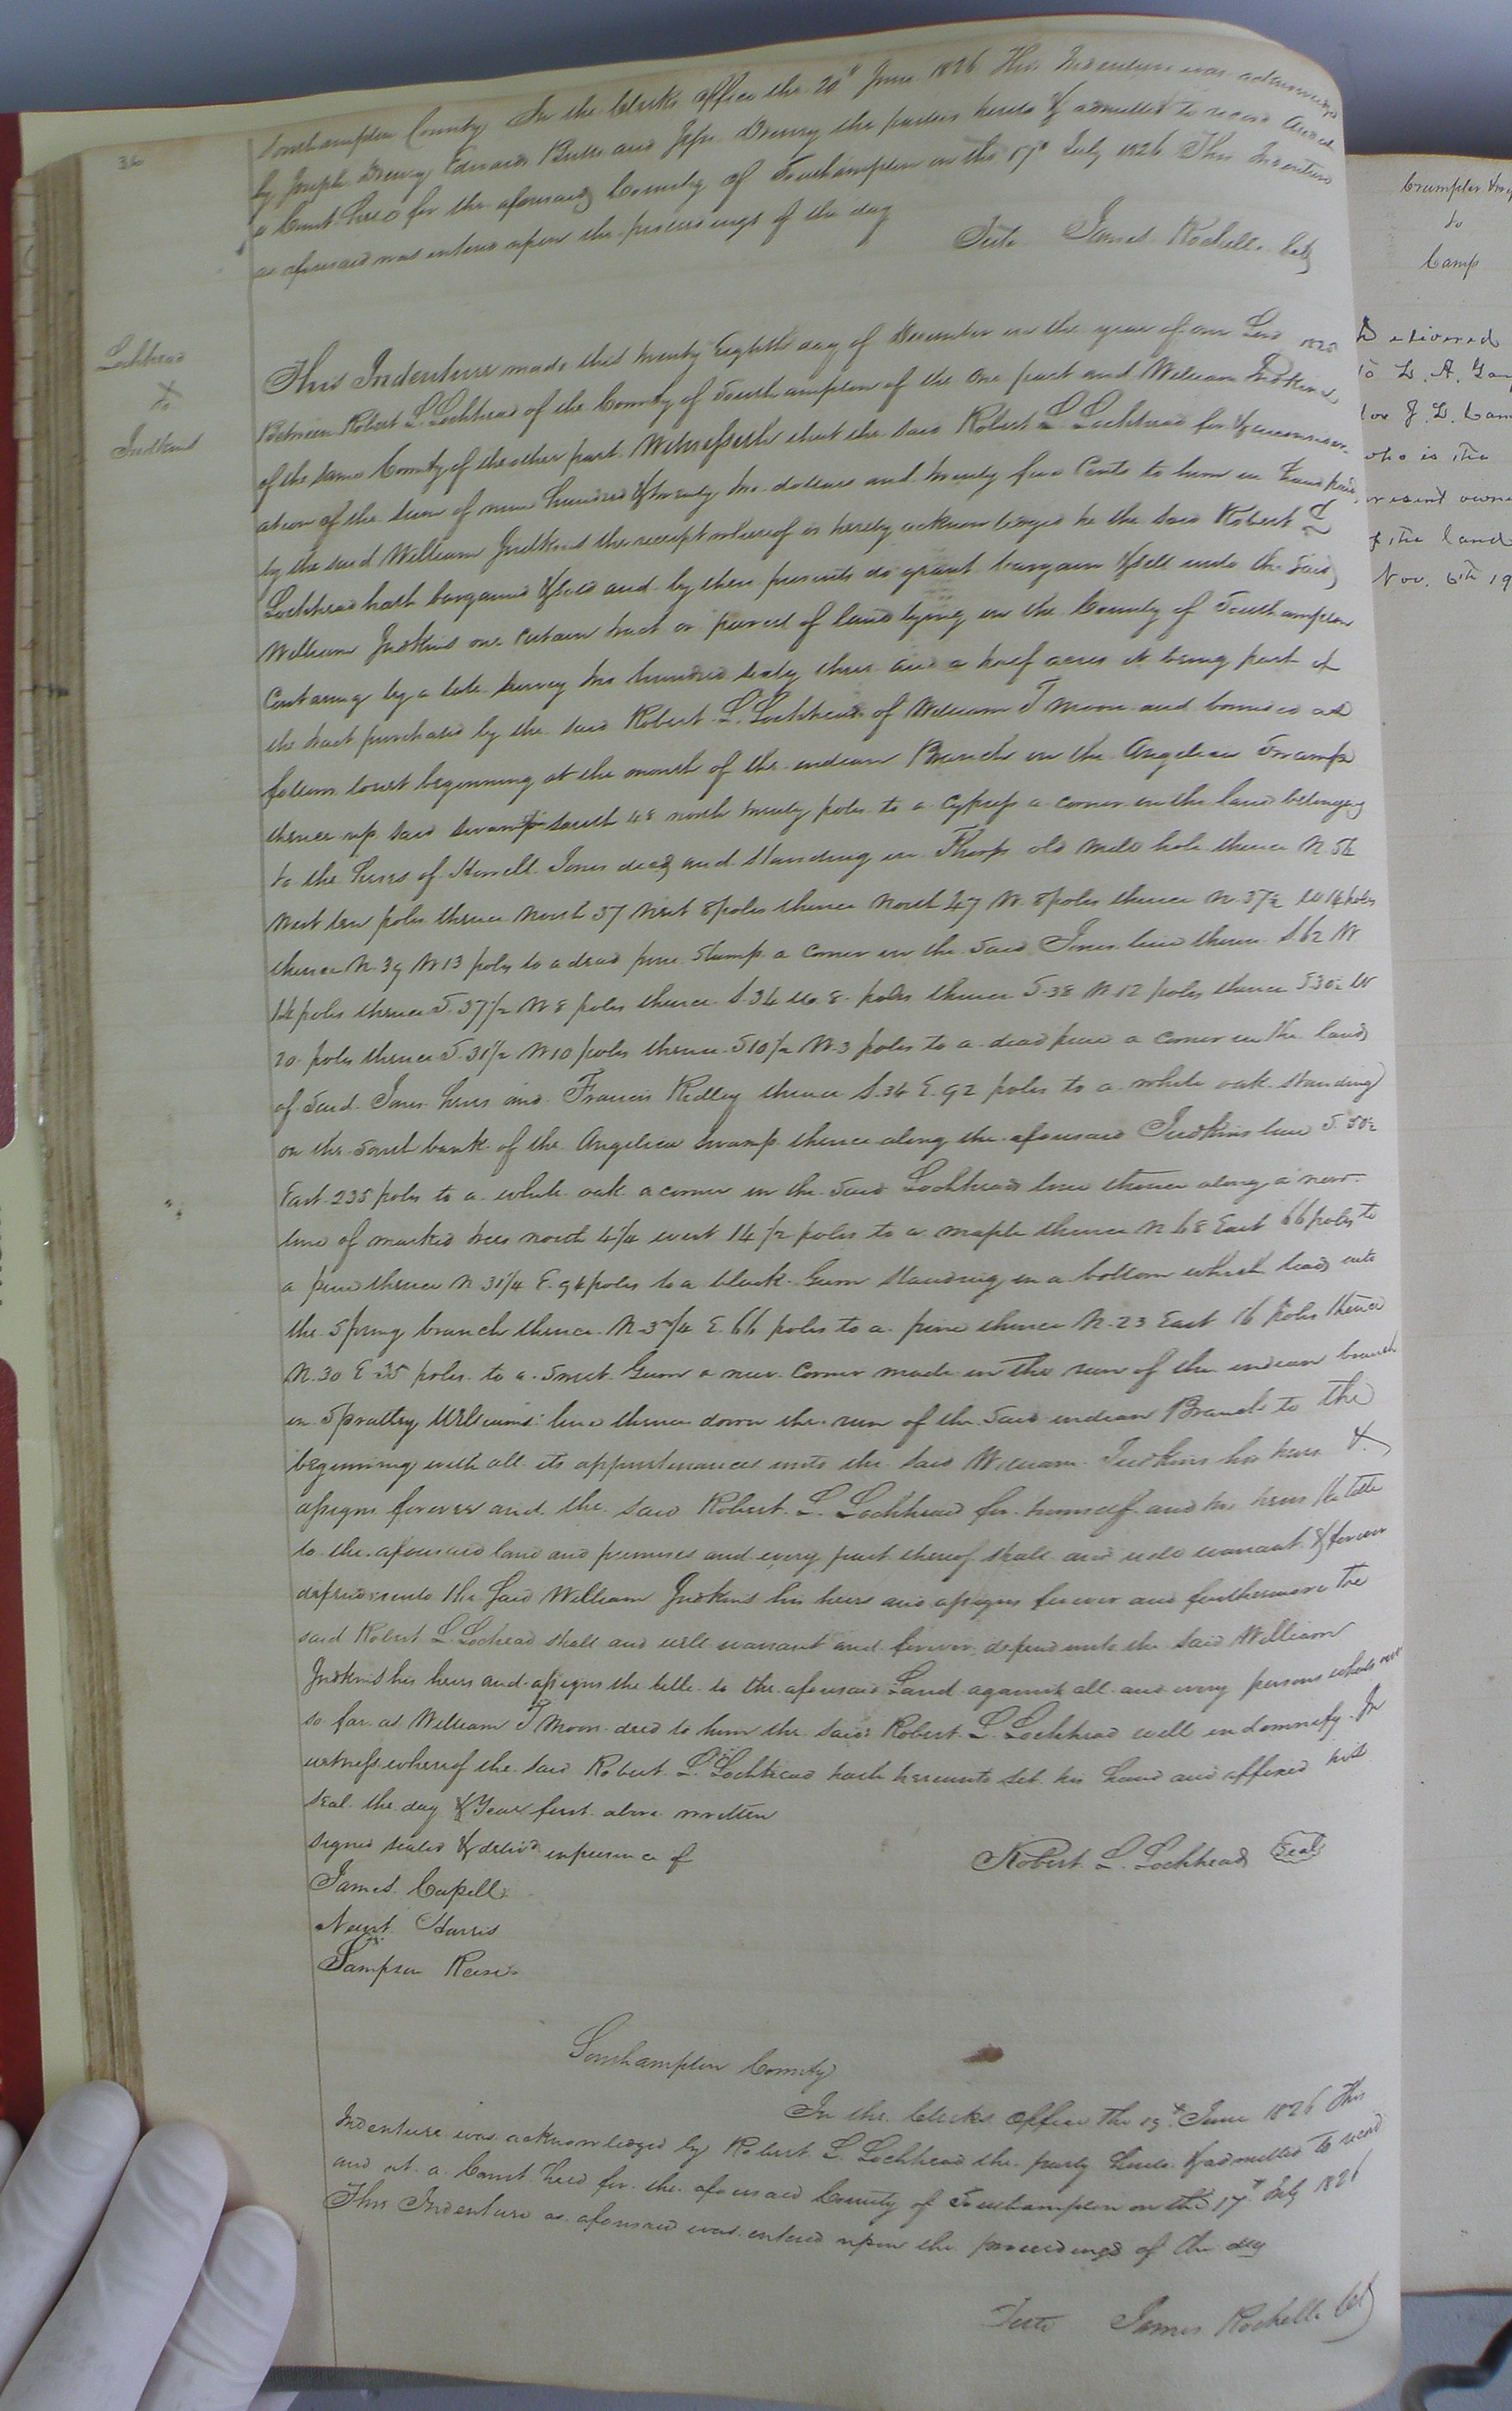 36
Southampton County In the Clerks office the 20th June 1826 This Indenture was acknowledged
by Joseph Drewry Edward Butts and Drewry the parties hereto & admitted to record And at
a Court held for the aforesaid County of Southampton on the 17th July 1826 This Indenture
as aforesaid was entered upon the proceedings of the day
Teste James Rochelle Clk
Lochhead
to
Judkins
This Indenture made this twenty Eighth day of December in the year of our Lord 1825
Between Robert L. Lochhead of the County of Southampton of the one part and William Judkins
of the same County of the other part. Witnesseth that the said Robert L Lochhead for & in consider-
ation of the sum of nine hundred & twenty two dollars and twenty five Cents to him in hand paid
by the said William Judkins the receipt whereof is hereby acknowledged he the said Robert L
Lochhead hath bargained & sold and by these presents do grant bargain & sell unto the said
William Judkins one certain tract or parcel of land lying in the County of Southampton
Containing by a late survey two hundred sixty three and a half acres it being part of
the tract purchased by the said Robert L. Lochhead of William T Moore and bounded as
follows towit beginning at the mouth of the indian Branch in the Angelica Swamp
thence up said swamp south 48 north twenty poles to a cypress a corner in the land belonging
to the heirs of Howell Jones decd and standing in Tharps old mill hole thence N. 56
West ten poles thence North 37 West 8 poles thence North 47 W. 8 poles thence N. 37½ W 14 poles
thence N. 39 W 13 poles to a dead pine stump a corner in the said Jones line thence S. 62 W
14 poles thence S. 37½ W 8 poles thence S. 34 W. 8 poles thence S. 38 W. 12 poles thence S 30½ W
20 poles thence S. 31½ W 10 poles thence S 10½ W. 3 poles to a dead pine a corner in the land
of said Jones heirs and Francis Ridley thence S. 34 E. 92 poles to a white oak standing
on the south bank of the Angelica Swamp thence along the aforesaid Judkins line S. 50½
East 235 poles to a white oak a corner in the said Lochheads line thence along a new
line of marked trees north 4¼ west 14½ poles to a maple thence N. 68 East 66 poles to
a pine thence N 31¼ E. 94 poles to a black Gum standing in a bottom which leads into
the Spring branch thence N. 3¾ E. 66 poles to a pine thence N. 23 East 16 poles thence
N. 30 E 35 poles to a Sweet Gum a new corner made in the run of the indian branch
in Spratley Williams line thence down the run of the said indian Branch to the
beginning with all its appurtenances unto the said William Judkins his heirs &
assigns forever and the said Robert L. Lochhead for himself and his heirs the title
to the aforesaid land and premises and every part thereof shall and will warrant & forever
defend unto the said William Judkins his heirs and assigns forever and furthermore the
said Robert L. Lochead shall and will warrant and forever defend unto the said William
Judkins his heirs and assigns the title to the aforesaid Land against all and every persons whatsoever
so far as William T Moore deed to him the said Robert L. Lochhead will indemnify. In
witness whereof the said Robert L. Lochhead hath hereunto set his hand and affixed his
seal the day & Year first above written
signed sealed & delivd in presence of
Robert L. Lochhead Seal
James Capell
Newit Harris
Sampson Reese
Southampton County
In the Clerks Office the 19th June 1826 This
Indenture was acknowledged by Robert L. Lochhead the party hereto & admitted to record
and at a Court held for the aforesaid County of Southampton on the 17th July 1826
This Indenture as aforesaid was entered upon the proceedings of the day
Teste James Rochelle Clk
Crumpler
to
Camp
Delivered
to L. A.
for J. L. Cam
who is the
present owne
f the land
Nov. 6th 19